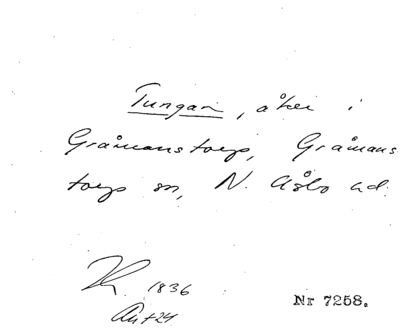 Tungan, åker i
Gråmanstorp, Gråmans
torp sn, N. Åsbo hd.
1836
Nr 7258.